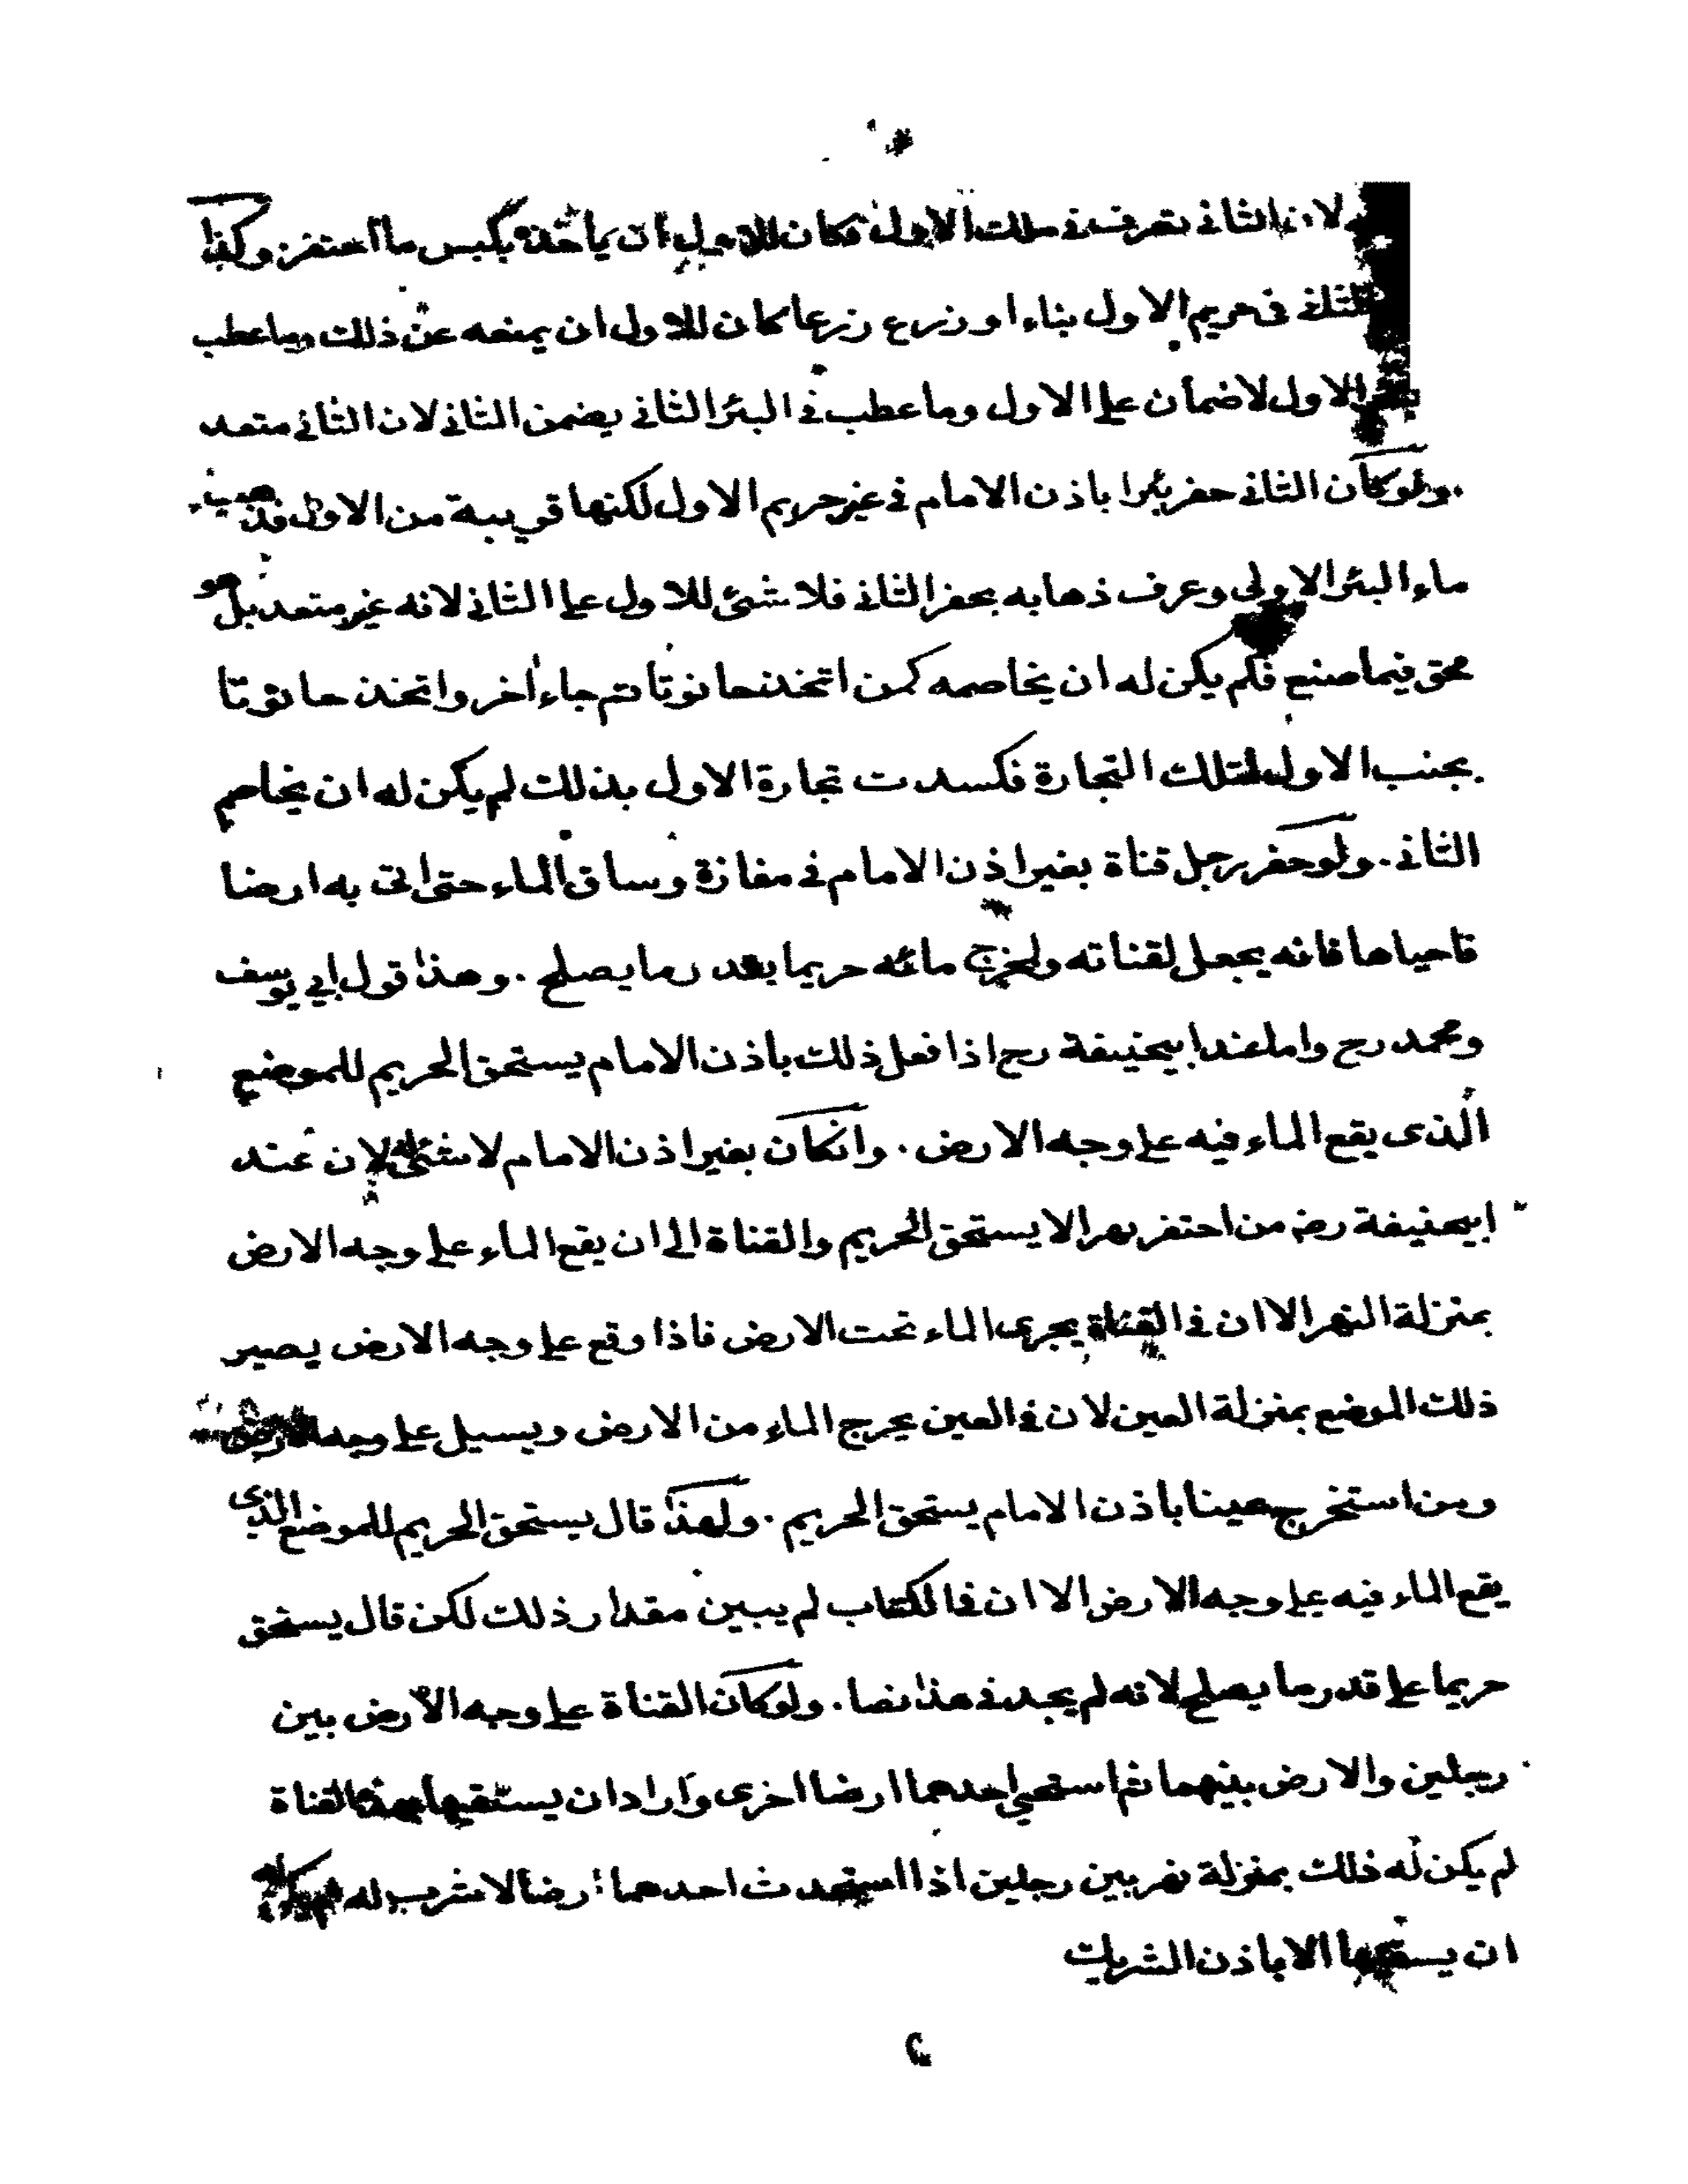 لان الثانى تصرف فى ملك الاول فكان للاول ان ياخذه بكبس ما احتفر وكذا
الثانى فى حريم الاول بناء او زرع زرعا كان للاول ان يمنعه عن ذلك وما عطب
الاول لا ضمان على الاول وما عطب فى البئر الثانى يضمن الثانى لان الثانى متعد
ولو كان الثانى حفر بئرا باذن الامام فى غير حريم الاول لكنها قريبة من الاول فذهب
ماء البئر الاولى وعرف ذهابه بحفر الثانى فلا شئ للاول على الثانى لانه غير متعد بل هو
محق فيما صنع فلم يكن له ان يخاصمه كمن اتخذ حانوتا ثم جاء اخر واتخذ حانوتا
بجنب الاول لتلك التجارة فكسدت تجارة الاول بذلك لم يكن له ان يخاصم
الثانى. ولو حفر رجل قناة بغير اذن الامام فى مفازة وساق الماء حتى اتى به ارضا
فاحياها فانه يجعل لقناته ولمخرج مائه حريما بقدر ما يصلح. وهذا قول ابى يوسف
ومحمد رح واما عند ابيحنيفة رح اذا فعل ذلك باذن الامام يستحق الحريم للموضع
الذى يقع الماء فيه على وجه الارض. وانكان بغير اذن الامام لا شئ له لان عند
ابيحنيفة رض من احتفر نهرا لا يستحق الحريم والقناة الى ان يقع الماء على وجه الارض
بمنزلة النهر الا ان فى القناة يجرى الماء تحت الارض فاذا وقع على وجه الارض يصير
ذلك الموضع بمنزلة العين لان فى العين يخرج الماء من الارض ويسيل على وجه الارض
ومن استخرج عينا باذن الامام يستحق الحريم. ولهذا قال يستحق الحريم للموضع الذى
يقع الماء فيه على وجه الارض الا ان فى الكتاب لم يبين مقدار ذلك لكن قال يستحق
حريما على قدر ما يصلح لانه لم يجد فى هذا نصا. ولو كان القناة على وجه الارض بين
رجلين والارض بينهما ثم استحيى احدهما ارضا اخرى واراد ان يستقيها بهذه القناة
لم يكن له ذلك بمنزلة نهر بين رجلين اذا استحدث احدهما ارضا لا شرب له لم يكن له
ان يسقيها الا باذن الشريك